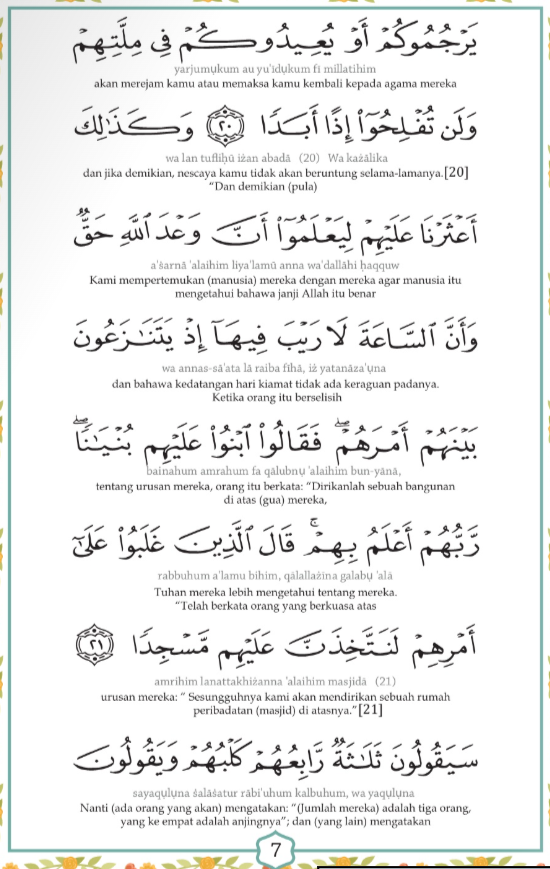 يَرْجُمُوكُمْ أَوْ يُعِيدُوكُمْ فِى مِلَّتِهِمْ
yarjumụkum au yu'īdụkum fī millatihim
akan merejam kamu atau memaksa kamu kembali kepada agama mereka
وَلَن تُفْلِحُوٓا۟ إِذًا أَبَدًا ﴿٢٠﴾ وَكَذَٰلِكَ
wa lan tufliḥū iżan abadā (20) Wa każālika
dan jika demikian, nescaya kamu tidak akan beruntung selama-lamanya.[20]
“Dan demikian (pula)
أَعْثَرْنَا عَلَيْهِمْ لِيَعْلَمُوٓا۟ أَنَّ وَعْدَ ٱللَّهِ حَقٌّ
a'ṡarnā 'alaihim liya'lamū anna wa'dallāhi ḥaqquw
Kami mempertemukan (manusia) mereka dengan mereka agar manusia itu
mengetahui bahawa janji Allah itu benar
وَأَنَّ ٱلسَّاعَةَ لَا رَيْبَ فِيهَآ إِذْ يَتَنَٰزَعُونَ
wa annas-sā'ata lā raiba fīhā, iż yatanāza'ụna
dan bahawa kedatangan hari kiamat tidak ada keraguan padanya.
Ketika orang itu berselisih
بَيْنَهُمْ أَمْرَهُمْ ۖ فَقَالُوا۟ ٱبْنُوا۟ عَلَيْهِم بُنْيَٰنًا ۖ
bainahum amrahum fa qālubnụ 'alaihim bun-yānā,
tentang urusan mereka, orang itu berkata: “Dirikanlah sebuah bangunan
di atas (gua) mereka,
رَّبُّهُمْ أَعْلَمُ بِهِمْ ۚ قَالَ ٱلَّذِينَ غَلَبُوا۟ عَلَىٰٓ
rabbuhum a'lamu bihim, qālallażīna galabụ 'alā
Tuhan mereka lebih mengetahui tentang mereka.
“Telah berkata orang yang berkuasa atas
أَمْرِهِمْ لَنَتَّخِذَنَّ عَلَيْهِم مَّسْجِدًا ﴿٢١﴾
amrihim lanattakhiżanna 'alaihim masjidā (21)
urusan mereka: “ Sesungguhnya kami akan mendirikan sebuah rumah
peribadatan (masjid) di atasnya.”[21]
سَيَقُولُونَ ثَلَٰثَةٌ رَّابِعُهُمْ كَلْبُهُمْ وَيَقُولُونَ
sayaqụlụna ṡalāṡatur rābi'uhum kalbuhum, wa yaqụlụna
Nanti (ada orang yang akan) mengatakan: “(Jumlah mereka) adalah tiga orang,
yang ke empat adalah anjingnya”; dan (yang lain) mengatakan
7